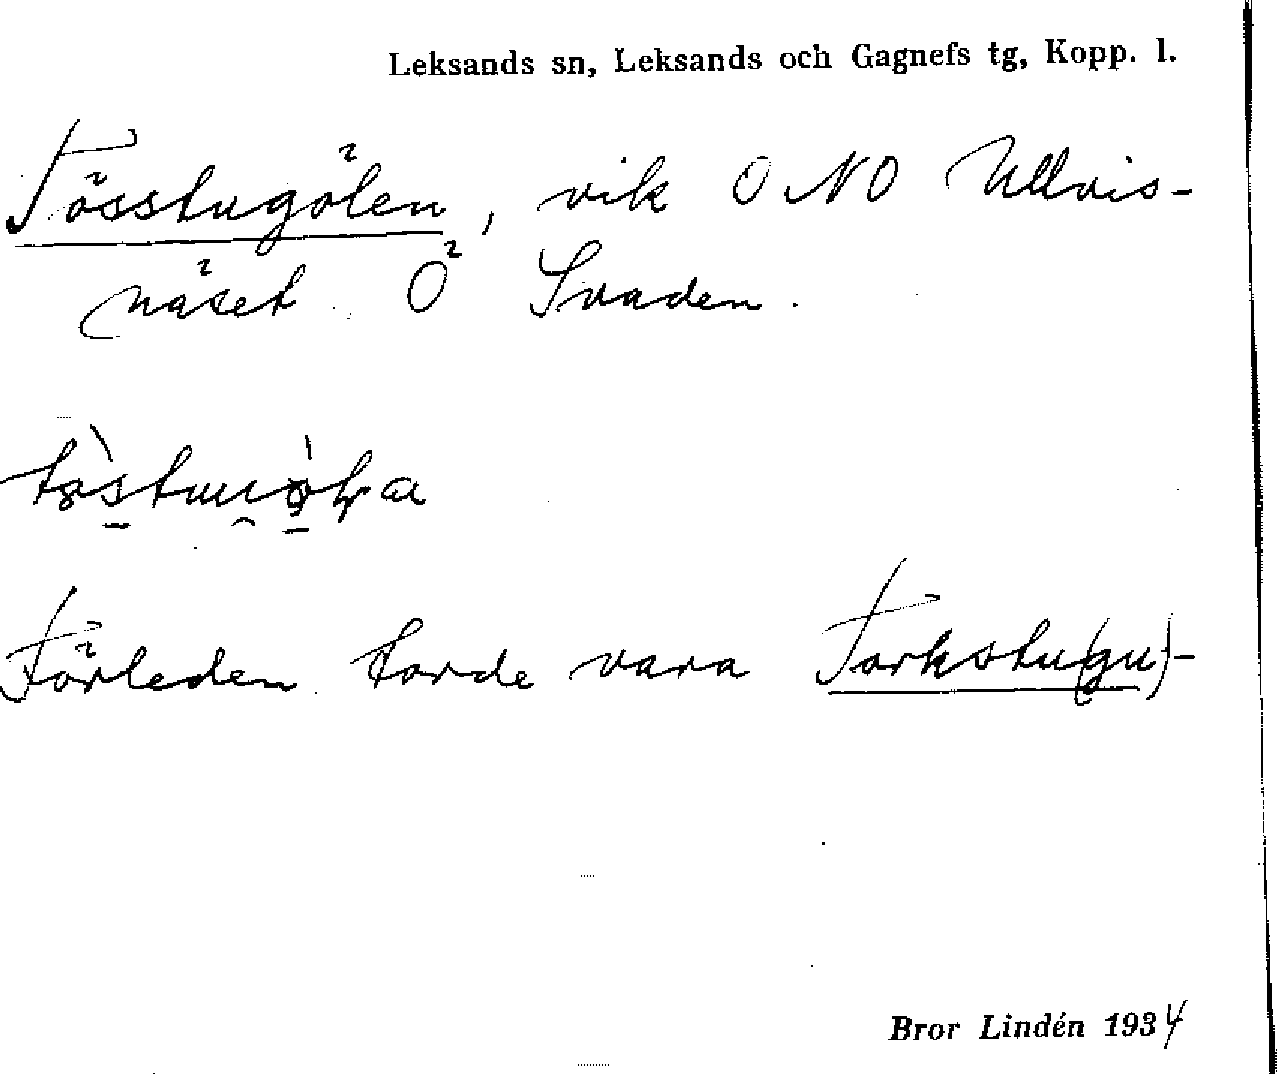 Leksands sn, Leksands och Gagnefs tg, Kopp. l.
Tösstugölen, vik ONO Ullvis-
näset. Ö Svaden.
Förleden torde vara Torkstu(gu)-
Bror Lindén 1934